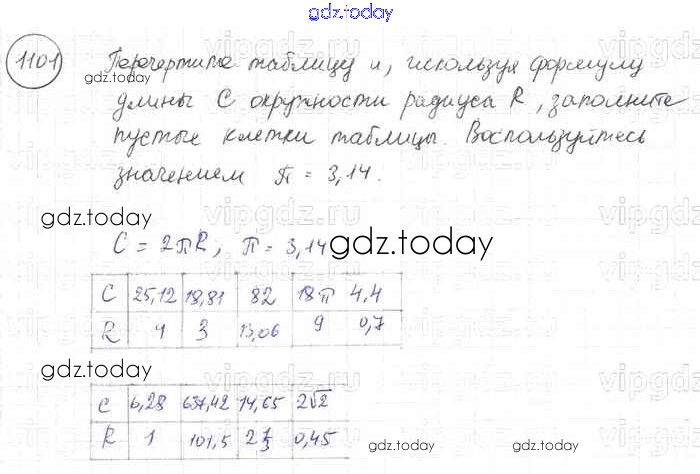 gdz.today
1101 Перечертите таблицу и, используя формулу
gdz.today
длины C окружности радиуса R, заполните
пустые клетки таблицы. Воспользуйтесь
значением π = 3,14.
vipgdz.ru
gdz.today
C = 2πR, π = 3,14
gdz.today
C 25,12 18,81 82 18π 4,4
R 4 3 13,06 9 0,7
gdz.today
C 6,28 637,42 14,65 2√2
R 1 101,5 2 1/3 0,45
gdz.today
gdz.today